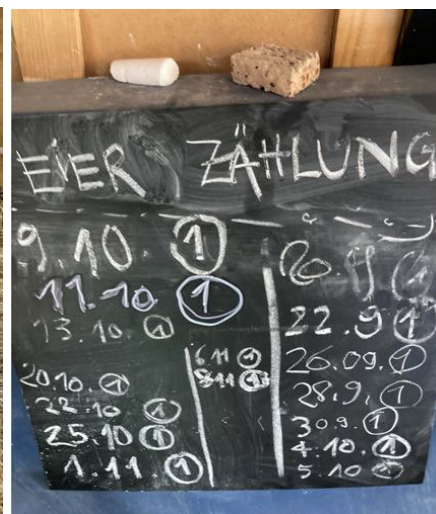 EIER ZÄHLUNG
9.10. 1
11.10 1
13.10. 1
20.10. 1
22.10 1
25.10 1
1.11 1
6.11 1
8.11 1
20.9 1
22.9 1
26.09. 1
28.9. 1
30 9. 1
4.10. 1
5.10 1